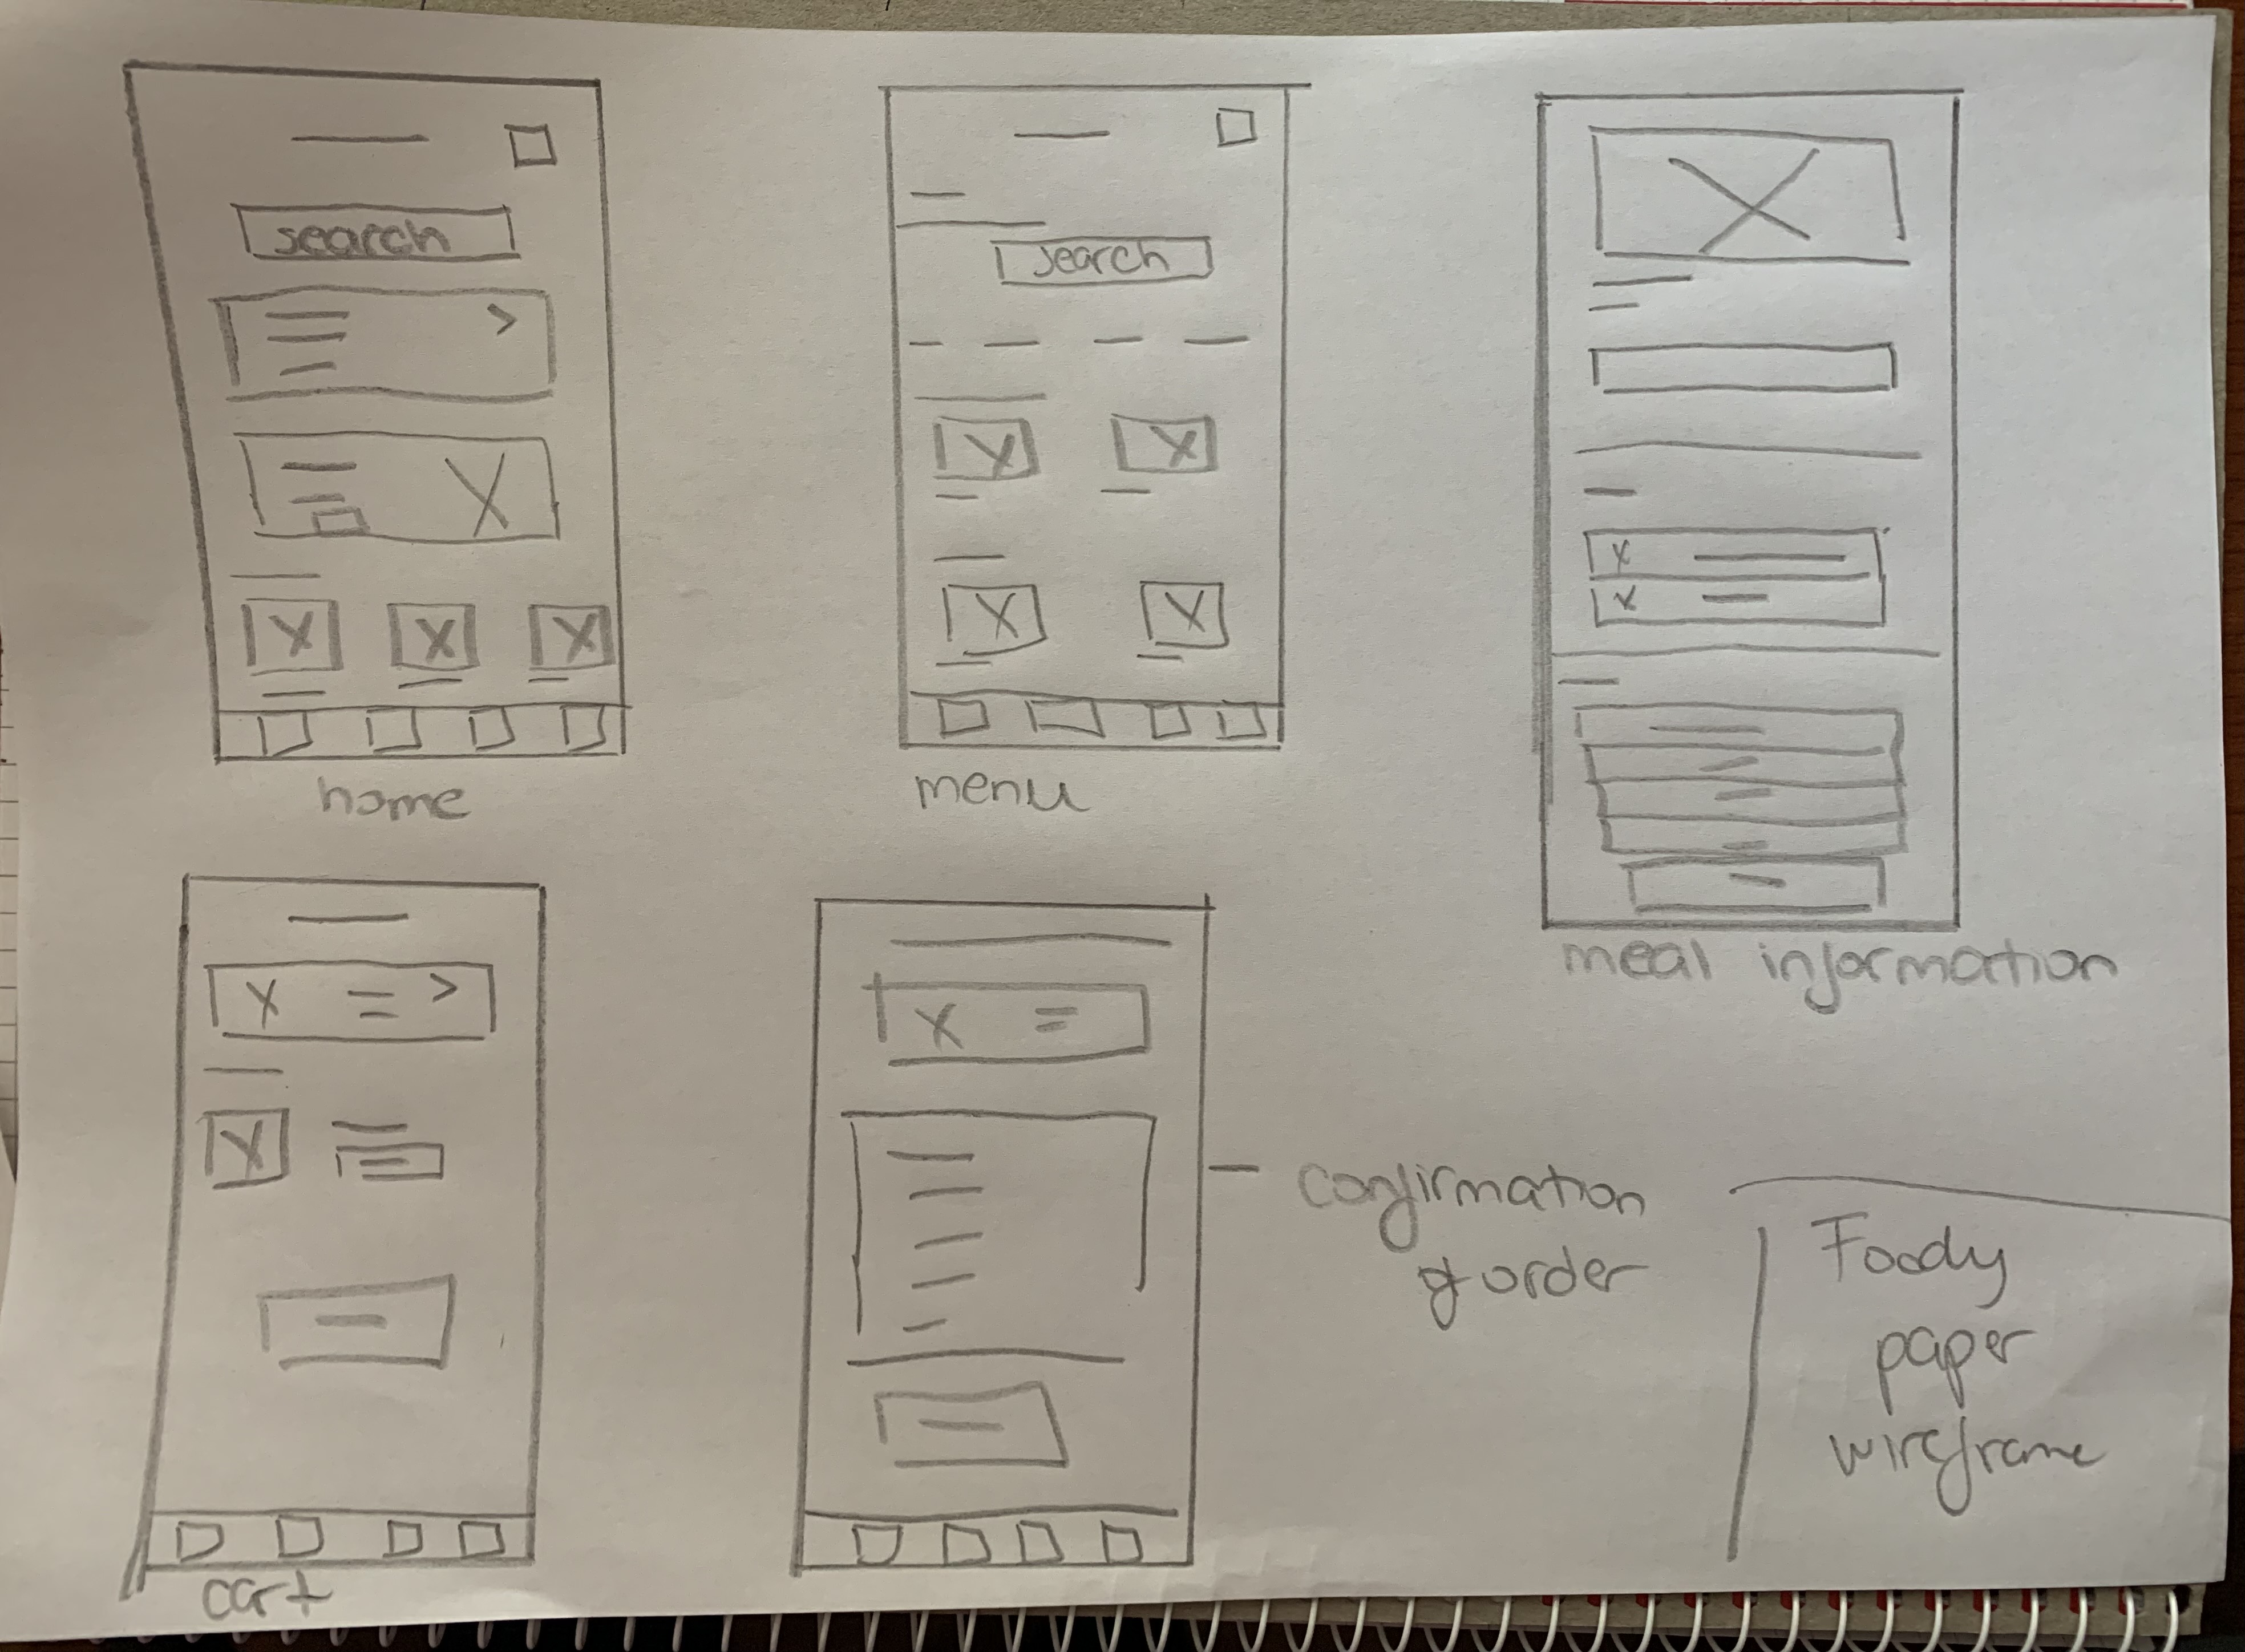 search
search
home
menu
meal information
cart
confirmation
of order
Foody
paper
wireframe